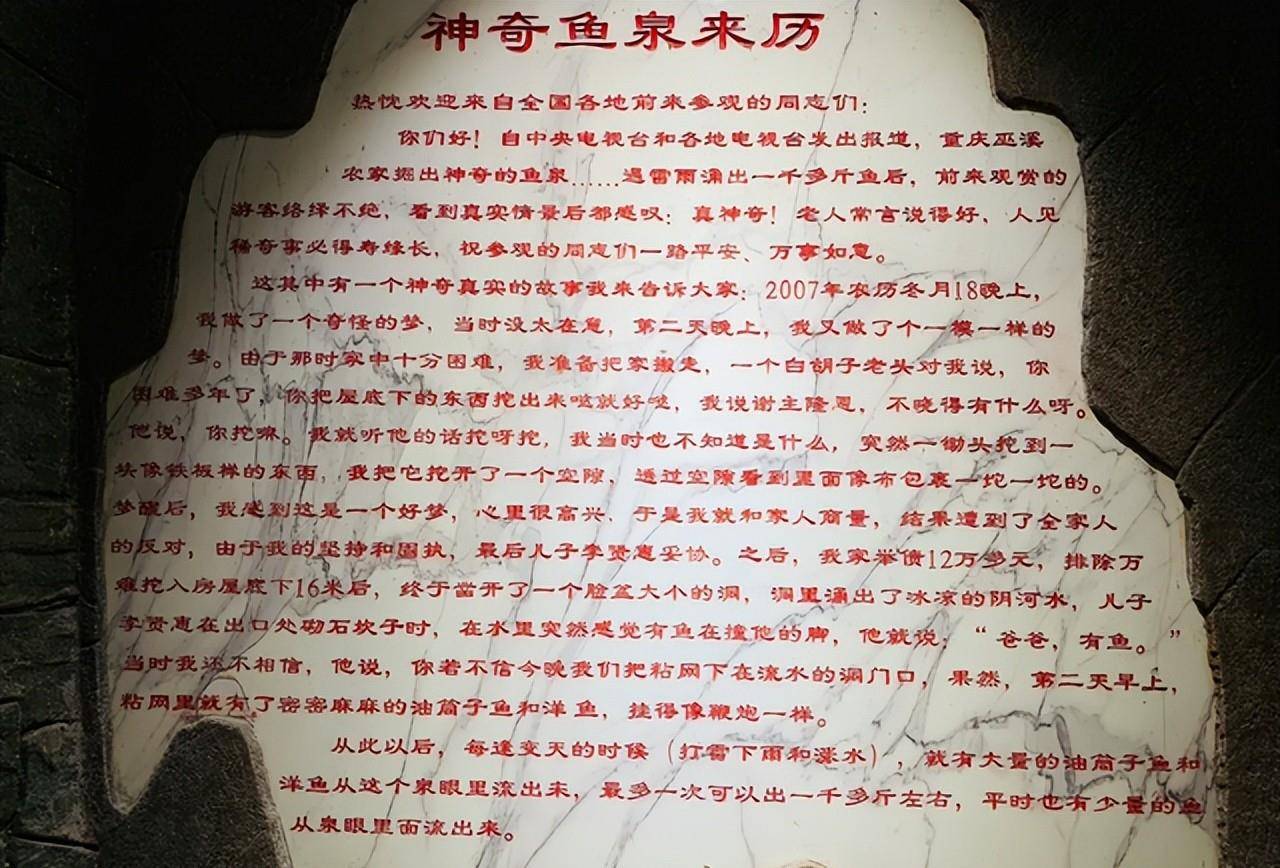 神奇鱼泉来历
热忱欢迎来自全国各地前来参观的同志们：
你们好！自中央电视台和各地电视台发出报道，重庆巫溪
农家掘出神奇的鱼泉……遇雷雨涌出一千多斤鱼后，前来观赏的
游客络绎不绝，看到真实情景后都感叹：真神奇！老人常言说得好、人见
稀奇事必得寿缘长，祝参观的同志们一路平安、万事如意。
这其中有一个神奇真实的故事我来告诉大家：2007年农历冬月18晚上，
我做了一个奇怪的梦，当时没太在意，第二天晚上，我又做了个一模一样的
梦。由于那时家中十分困难，我准备把家搬走，一个白胡子老头对我说，你
困难多年了，你把屋底下的东西挖出来哒就好哒，我说谢主隆恩，不晓得有什么呀。
他说，你挖嘛。我就听他的话挖呀挖，我当时也不知道是什么，突然一锄头挖到一
块像铁板样的东西，我把它挖开了一个空隙，透过空隙看到里面像布包裹一坨一坨的。
梦醒后，我感到这是一个好梦，心里很高兴、于是我就和家人商量，结果遭到了全家人
的反对，由于我的坚持和固执，最后儿子李贤惠妥协。之后，我家举债12万多元，排除万
难挖入房屋底下16米后，终于凿开了一个脸盆大小的洞，洞里涌出了冰凉的阴河水，儿子
李贤惠在出口处砌石坎子时，在水里突然感觉有鱼在撞他的脚，他就说：“爸爸，有鱼。”
当时我还不相信，他说，你若不信今晚我们把粘网下在流水的洞门口，果然，第二天早上，
粘网里就有了密密麻麻的油筒子鱼和洋鱼，挂得像鞭炮一样。
从此以后，每逢变天的时候（打雷下雨和涨水），就有大量的油筒子鱼和
洋鱼从这个泉眼里流出来，最多一次可以出一千多斤左右，平时也有少量的鱼
从泉眼里面流出来。